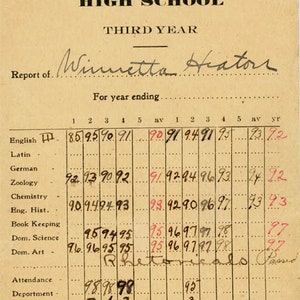 HIGH SCHOOL
THIRD YEAR
Report of Winnetta Heaton
For year ending
1 2 3 4 av 1 2 3 4 av yr
English III 85 95 90 91 90 91 94 91 95 93 92
Latin
German
Zoology 92 93 90 92 91 92 94 96 93 94 92
Chemistry
Eng. Hist. 90 94 94 93 93 92 90 96 97 93
Book Keeping
Dom. Science 95 94 95 95 96 97 97 98 97
Dom. Art 96 96 95 95 95 96 97 97 98 97
Rhetoricals Passed
Attendance
Department 98 98 98 95